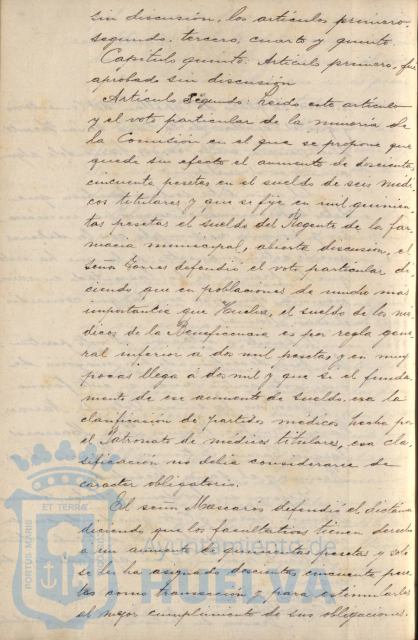 sin discusión, los artículos primero,
segundo, tercero, cuarto y quinto.
Capítulo quinto. Artículo primero, fue
aprobado sin discusión
Artículo Segundo: Leido este artículo
y el voto particular de la minoría de
la Comisión en el que se propone que
quede sin efecto el aumento de doscientas
cincuenta pesetas en el sueldo de seis médi
cos titulares y que se fije en mil quinien
tas pesetas el sueldo del Regente de la far
macia municipal, abierta discusión, el
señor Torres defendió el voto particular di
ciendo que en poblaciones de mucho mas
importantia que Huelva, el sueldo de los mé
dicos de la Beneficencia es por regla gene
ral inferior a dos mil pesetas y en muy
pocas llega á dos mil y que si el funda
mento de ese aumento de sueldo era la
clasificación de partidos médicos hecha por
el Patronato de médicos titulares, esa cla
sificación no debia considerarse de
caracter obligatorio.
El señor Mascarós defendió el dictámen
diciendo que los facultativos tienen derecho
a un aumento de quinientas pesetas y solo
se les ha asignado doscientas cincuenta pese
tas como transacción y para estimularles
al mejor cumplimiento de sus obligaciones.
PORTUS MARIS
ET TERRÆ
Ayuntamiento de
HUELVA